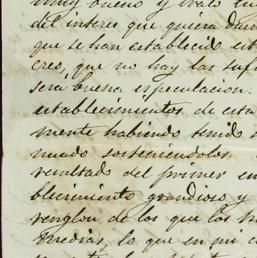 muy bueno y vale
del interes que quiera dar
que se han establecido est
creo, que no hay las suf
será buena especulacion.
establecimientos de esta
mente habiendo tenido
mundo sosteniéndolos.
resultado del primer en
blecimiento grandioso y
renglon de los que los
medias, lo que en mi